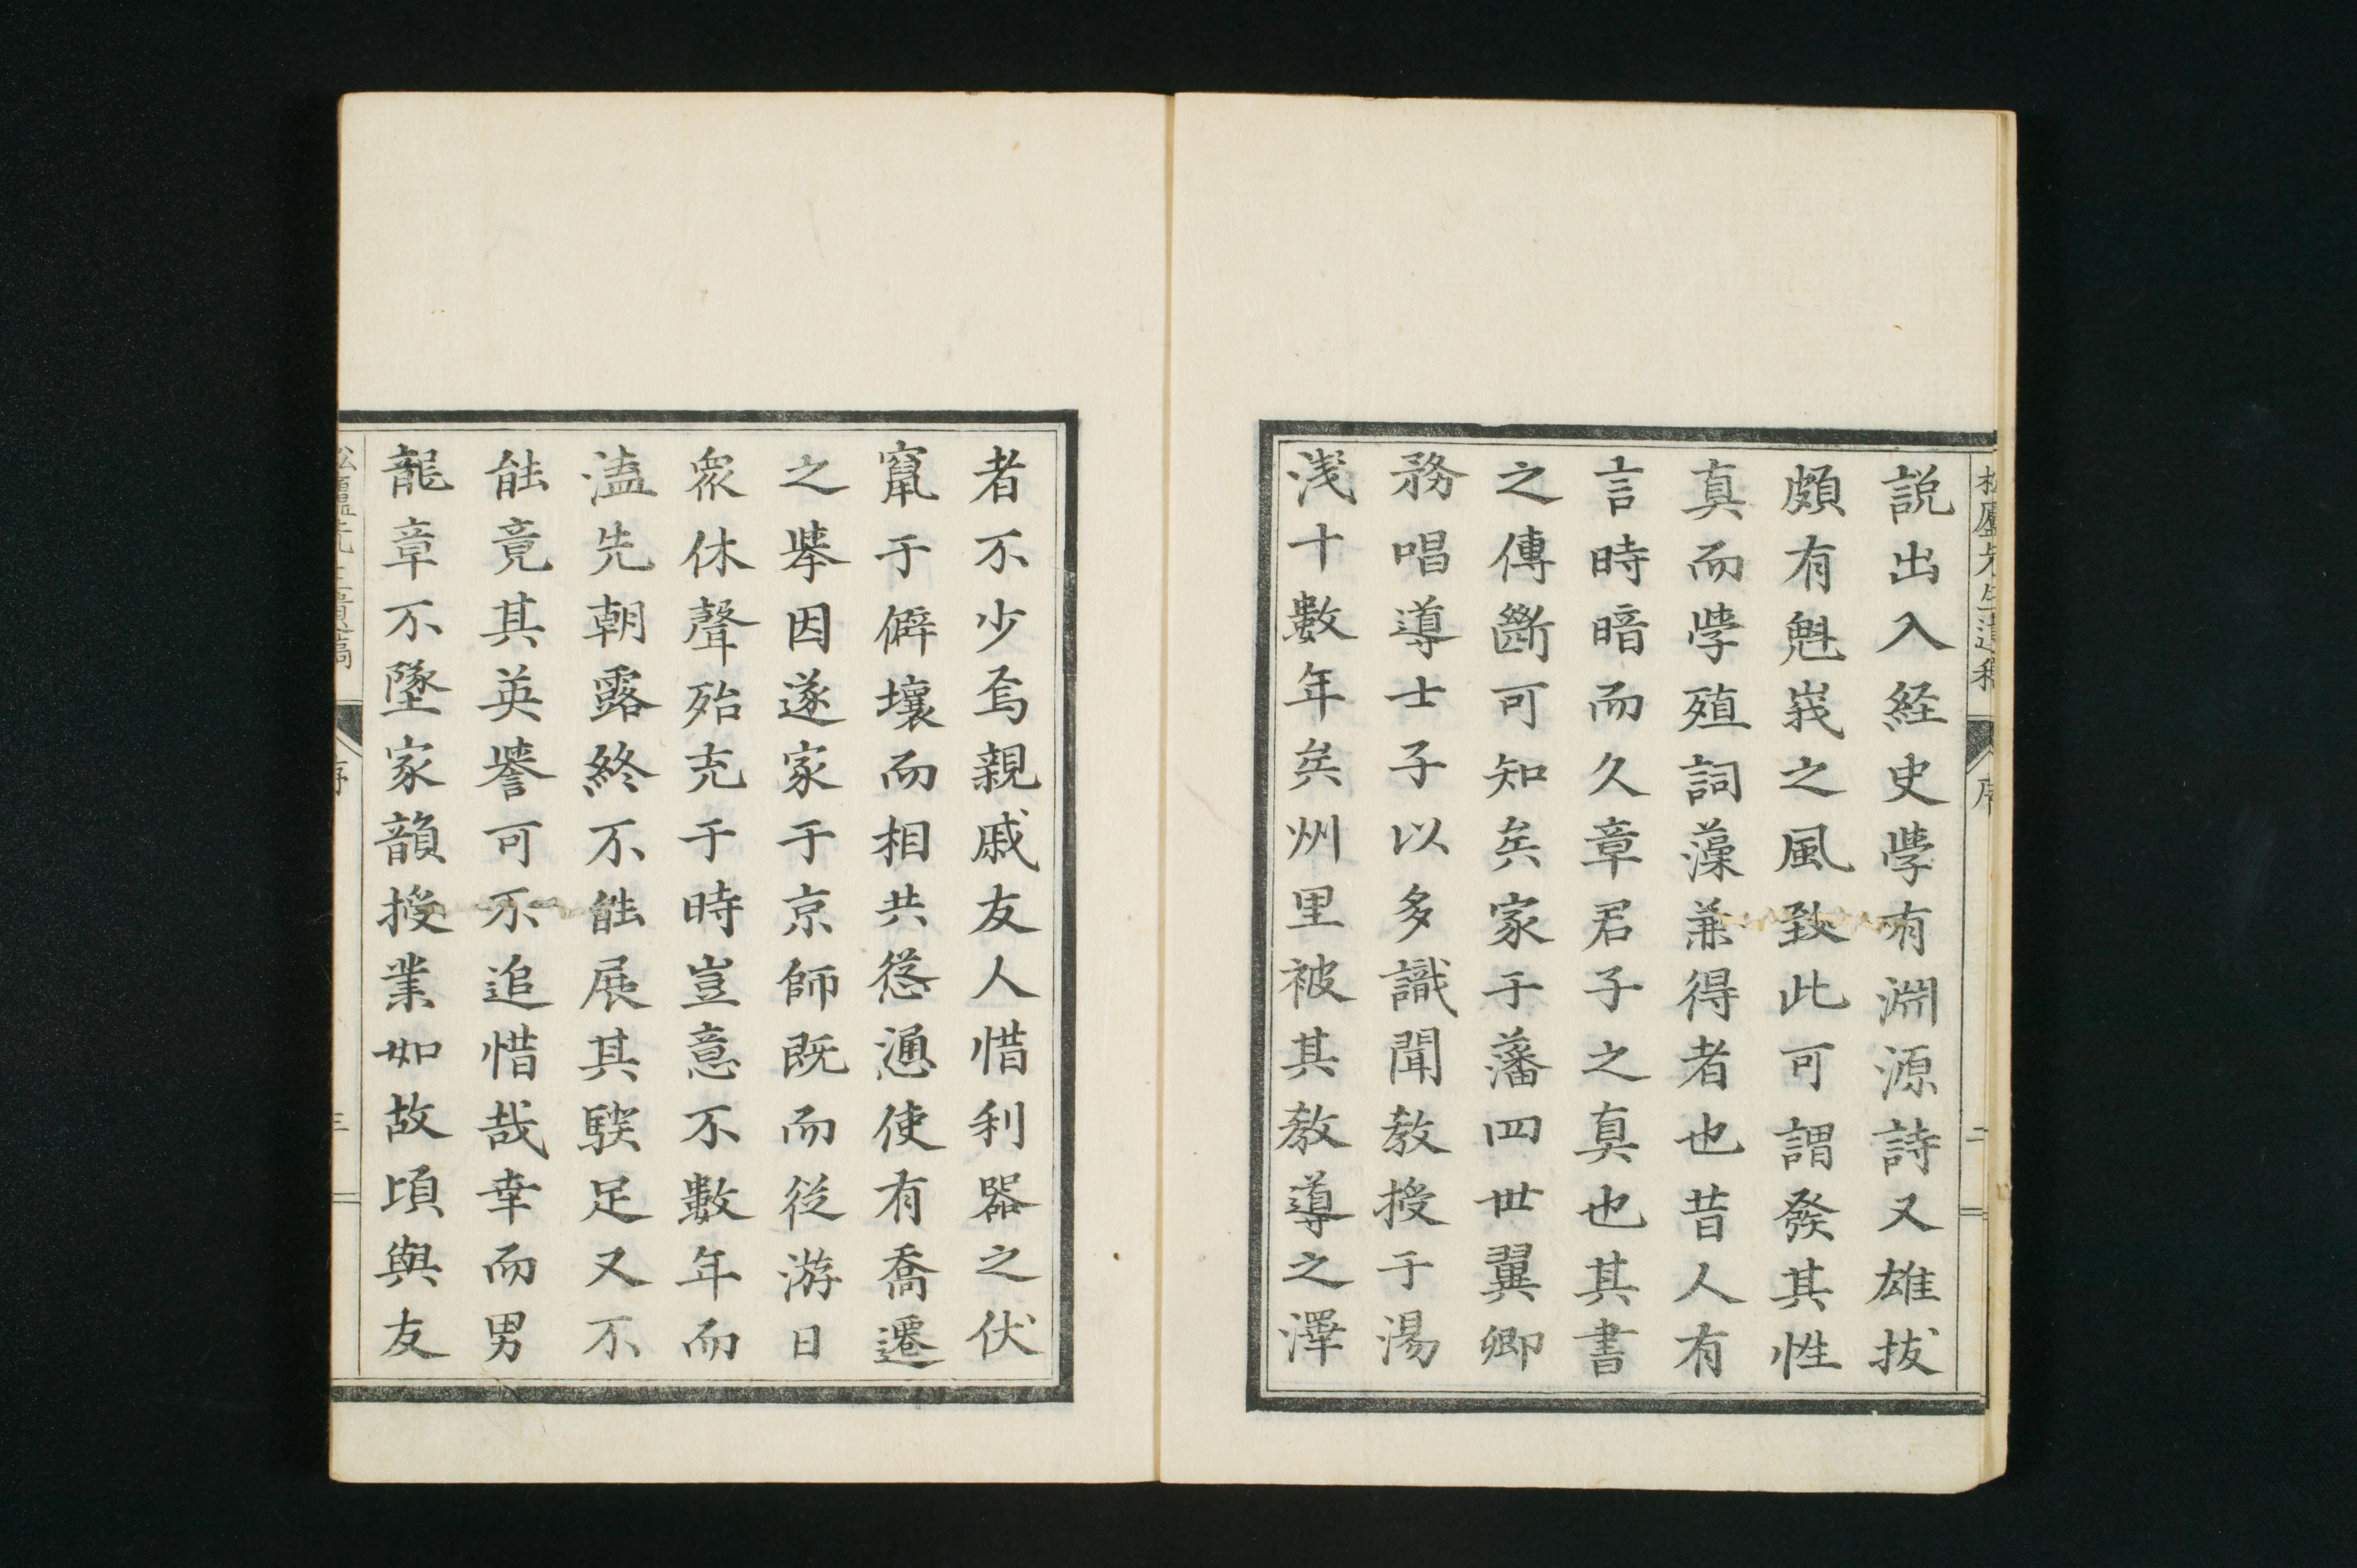 説出入経史學有淵源詩又雄拔
頗有魁峩之風致此可謂發其性
真而學殖詞藻兼得者也昔人有
言時暗而久章君子之真也其書
之傳斷可知矣家于藩四世翼卿
務唱導士子以多識聞教授于湯
浅十數年矣州里被其教導之澤
者不少焉親戚友人惜利器之伏
竄于僻壤而相共慫慂使有喬遷
之擧因遂家于京師既而従游日
衆休聲殆充于時豈意不數年而
溘先朝露終不能展其驥足又不
能竟其英譽可不追惜哉幸而男
龍章不墜家韻授業如故頃與友
序
二